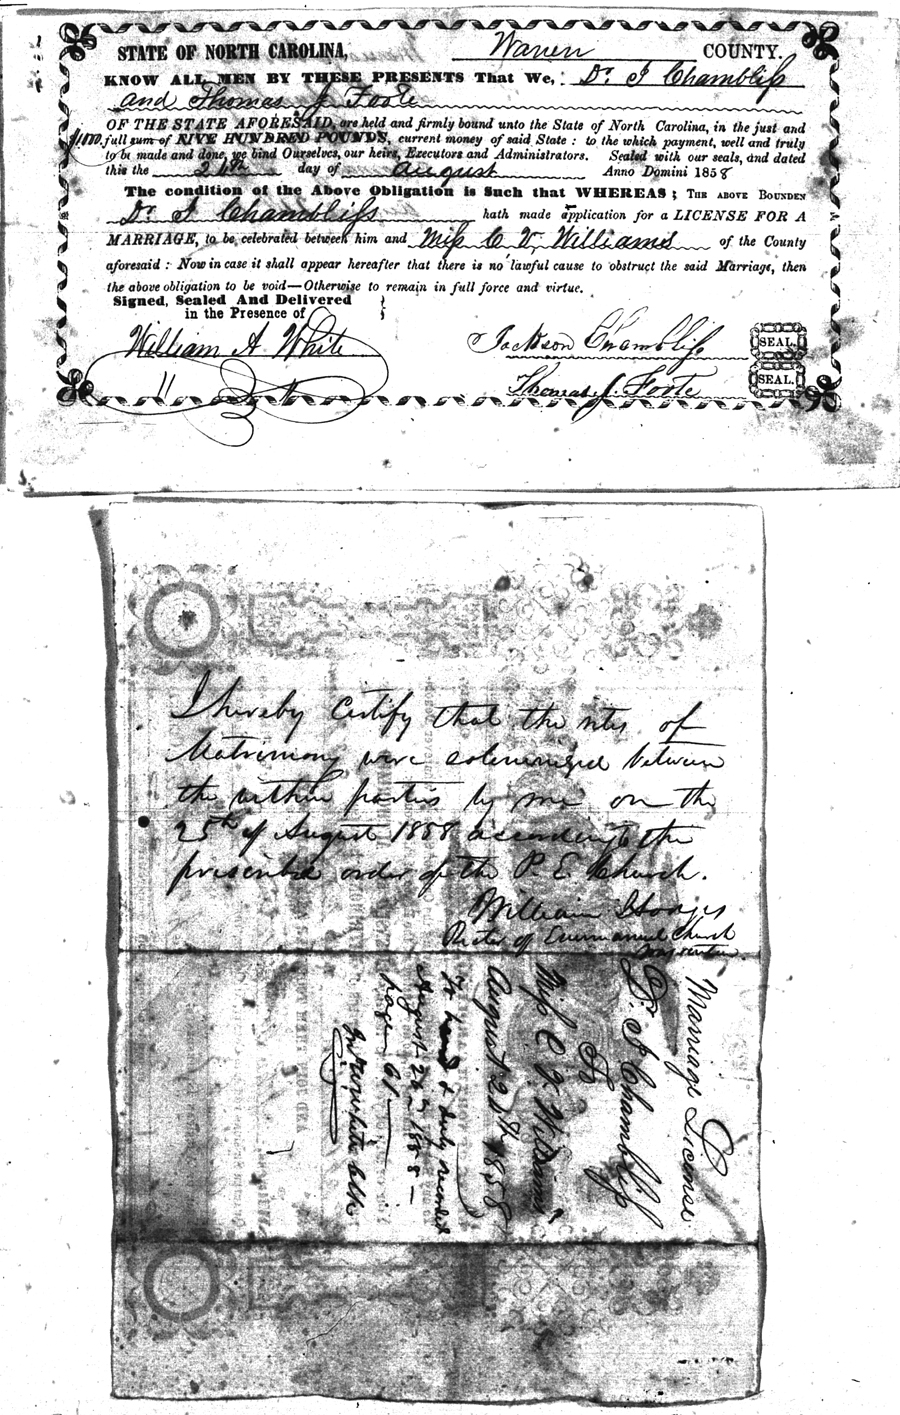 STATE OF NORTH CAROLINA, Warren COUNTY.
KNOW ALL MEN BY THESE PRESENTS That We, Dr. J Chambliss
and Thomas J. Foote
OF THE STATE AFORESAID, are held and firmly bound unto the State of North Carolina, in the just and
$1000. full sum of FIVE HUNDRED POUNDS, current money of said State: to the which payment, well and truly
to be made and done, we bind Ourselves, our heirs, Executors and Administrators. Sealed with our seals, and dated
this the 24th day of August Anno Domini 1858
The condition of the Above Obligation is Such that WHEREAS; THE ABOVE BOUNDEN
Dr. J Chambliss hath made application for a LICENSE FOR A
MARRIAGE, to be celebrated between him and Miss C V. Williams of the County
aforesaid: Now in case it shall appear hereafter that there is no lawful cause to obstruct the said Marriage, then
the above obligation to be void—Otherwise to remain in full force and virtue.
Signed, Sealed And Delivered
in the Presence of
William A White
Jackson Chambliss SEAL.
Thomas J. Foote SEAL.
I hereby certify that the rites of
Matrimony were solemnized between
the within parties by me on the
25th of August 1858 according to the
prescribed order of the P. E. Church.
William Hodges
Rector of Emmanuel Church
Warrenton
Marriage License
Dr. J Chambliss
To
Miss C. V. Williams
August 24th 1858
To hand & duly recorded
August 26 1858
page 61
Wm A White Clk